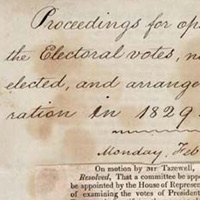 Proceedings for op
the Electoral votes, n
elected, and arrange
ration in 1829.
Monday, Feb
On motion by Mr Tazewell,
Resolved, That a committee be appo
be appointed by the House of Represe
of examining the votes of President